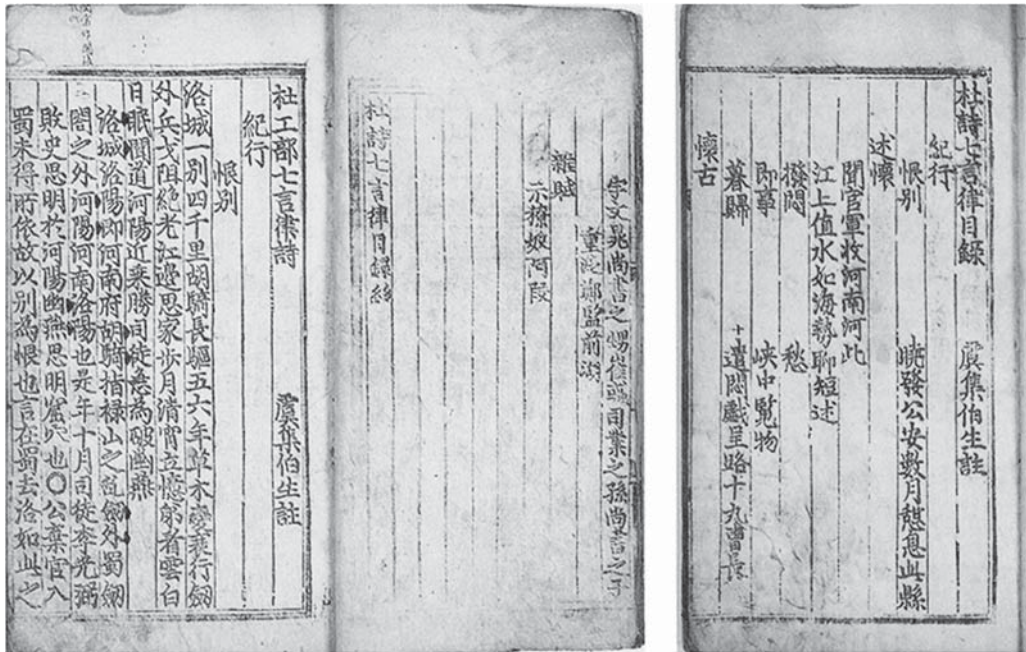 杜詩七言律目錄 虞集伯生註
紀行
恨別 曉發公安數月憩息此縣
述懷
聞官軍收河南河北
江上值水如海勢聊短述
撥悶 愁
即事 峽中覽物
暮歸 十 遣悶戲呈路十九曹長
懷古
宇文晁尚書之甥崔彧司業之孫尚書之子
重泛鄭監前湖
雜賦
示獠奴阿段
杜詩七言律目録終
杜工部七言律詩 虞集伯生註
紀行
恨別
洛城一別四千里胡騎長驅五六年草木變衰行劒
外兵戈阻絶老江邊思家步月清宵立憶弟看雲白
日眠聞道河陽近来勝司徒急為破幽燕
洛城洛陽即河南府胡騎指禄山之乱劒外蜀劒
閣之外河陽河南洛陽也是年十月司徒李光弼
敗史思明於河陽幽燕思明窟穴也○公棄官入
蜀未得所依故以别為恨也言在蜀去洛如此之